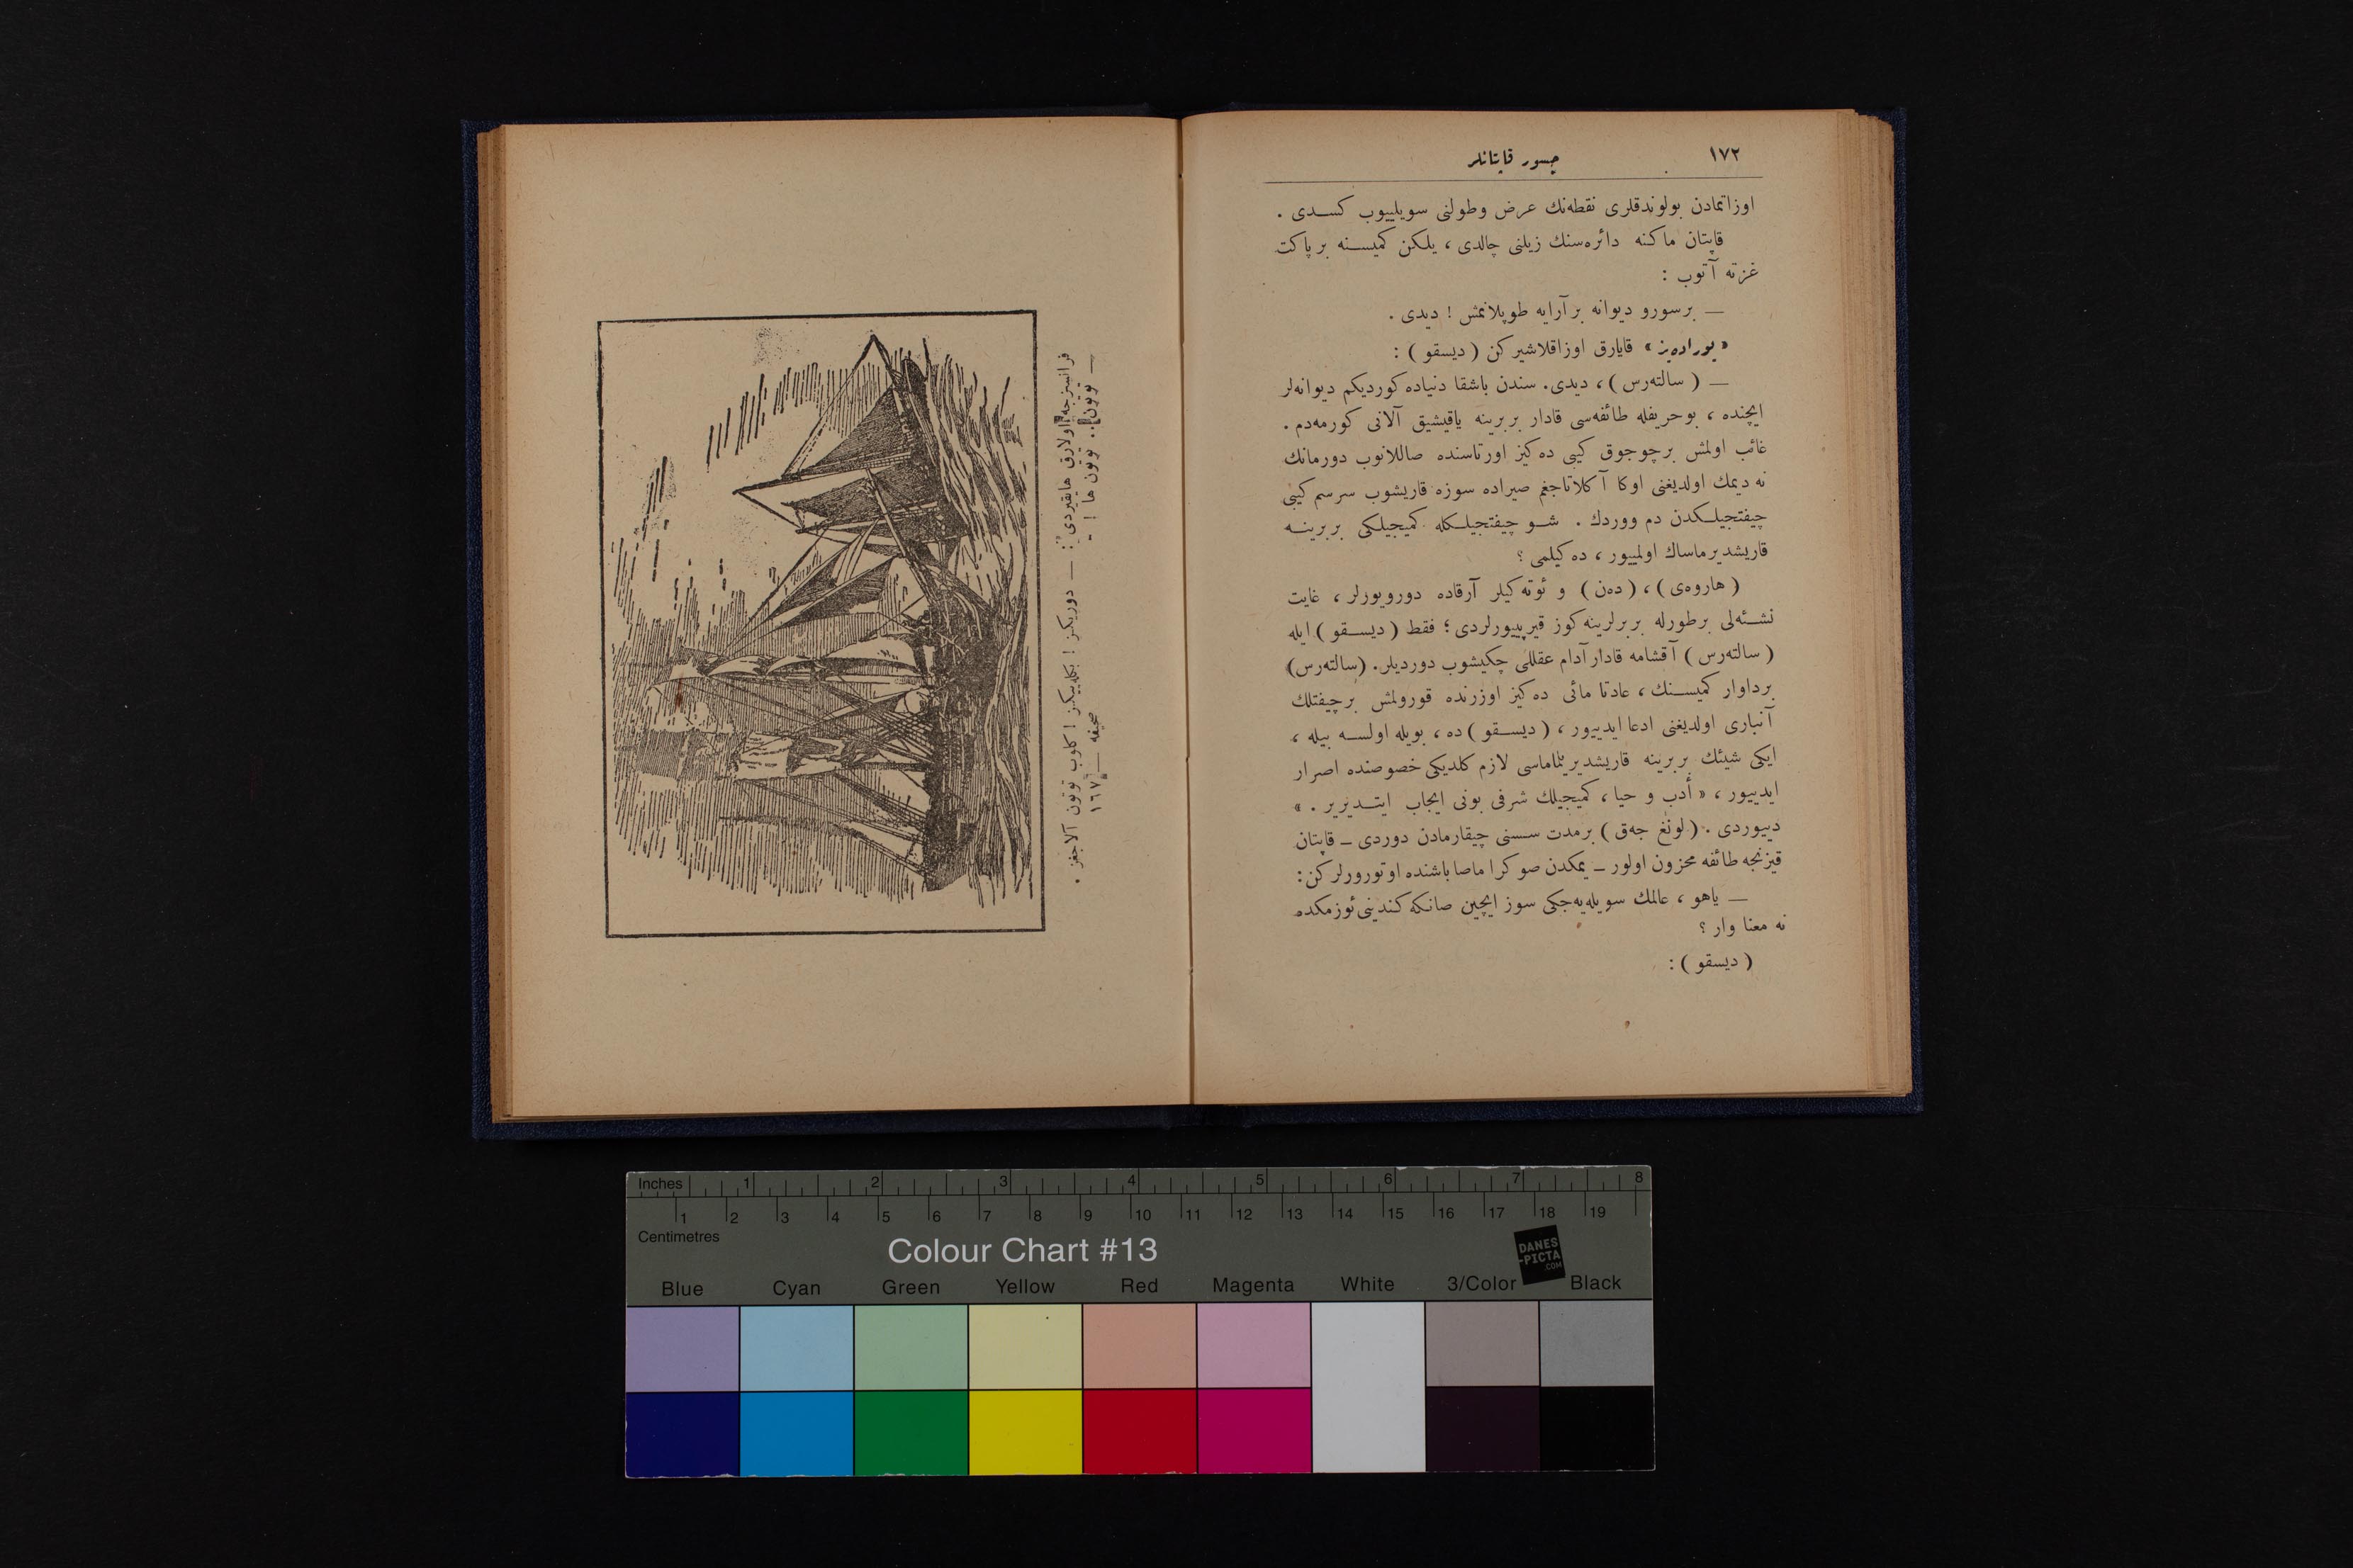 ١٧٢
جسور قاپتانلر
اوزاتمادن بولوندقلری نقطه‌نك عرض وطولنی سویلییوب كسدی .
قاپتان ماكنه دائره‌سنك زیلنی چالدی ، یلكن كمیسنه بر پاكت
غزته آتوب :
— برسورو دیوانه بر آرایه طوپلانمش ! دیدی .
« بوراده‌یز » قایارق اوزاقلاشیركن ( دیسقو ) :
— ( سالته‌رس ) ، دیدی . سندن باشقا دنیاده كوردیكم دیوانه‌لر
ایچنده ، بوحریفله طائفه‌سی قادار بربرینه یاقیشیق آلانی كورمه‌دم .
غائب اولمش برچوجوق كیی ده‌كیز اورتاسنده صاللانوب دورمانك
نه دیمك اولدیغنی اوكا آكلاتاجغم صیراده سوزه قاریشوب سرسم كیبی
چیفتجیلكدن دم ووردك . شو چیفتجیلكله كمیجیلكی بربرینه
قاریشدیرماساك اولمییور ، ده‌كیلمی ؟
( هاروه‌ی ) ، ( ده‌ن ) و ئوته‌كیلر آرقاده دورویورلر ، غایت
نشئه‌لی برطورله بربرلرینه كوز قیرپییورلردی ؛ فقط ( دیسقو ) ایله
( سالته‌رس ) آقشامه قادار آدام عقللی چكیشوب دوردیلر . ( سالته‌رس )
برداوار كمیسنك ، عادتا مائی ده‌كیز اوزرنده قورولمش برچیفتلك
آنباری اولدیغنی ادعا ایدییور ، ( دیسقو ) ده ، بویله اولسه بیله ،
ایكی شیئك بربرینه قاریشدیریلماماسی لازم كلدیكی خصوصنده اصرار
ایدییور ، « أدب و حیا ، كمیجیلك شرفی بونی ایجاب ایتدیریر . »
دییوردی . ( لونغ جه‌ق ) برمدت سسنی چیقارمادن دوردی — قاپتان
قیزنجه طائفه محزون اولور — یمكدن صوكرا ماصا باشنده اوتورورلركن :
— یاهو ، عالمك سویله‌یه‌جكی سوز ایچین صانكه كندینی ئوزمكده
نه معنا وار ؟
( دیسقو ) :
— توتون .. توتون ها ! -
فرانسزجه اولارق هایقیردی : — دوریكز ! بكله‌ییكز ! كلوب توتون آلاجغز .
صحیفه — ١٦٧
Inches 1 2 3 4 5 6 7 8
1 2 3 4 5 6 7 8 9 10 11 12 13 14 15 16 17 18 19
Centimetres
Colour Chart #13
DANES
-PICTA
.COM
Blue Cyan Green Yellow Red Magenta White 3/Color Black